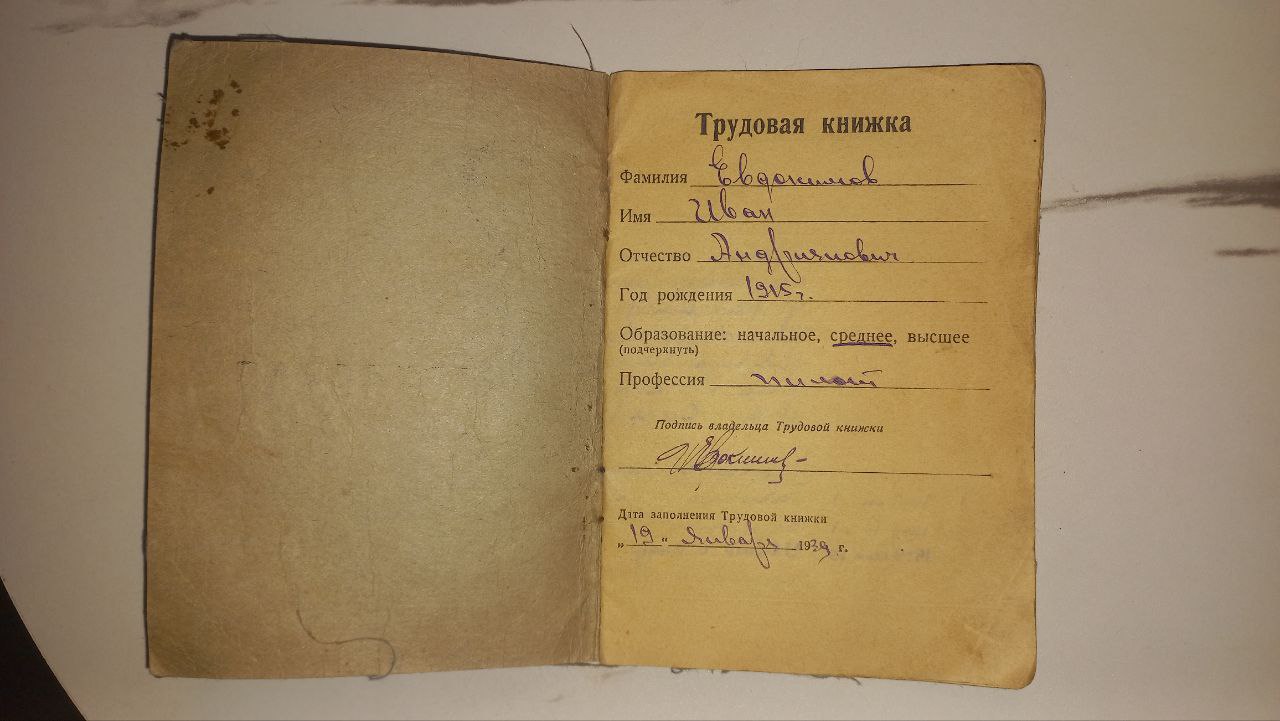 Трудовая книжка
Фамилия Евдокимов
Имя Иван
Отчество Андриянович
Год рождения 1915 г.
Образование: начальное, среднее, высшее
(подчеркнуть)
Профессия пилот
Подпись владельца Трудовой книжки
Дата заполнения Трудовой книжки
„19“ Января 1939 г.